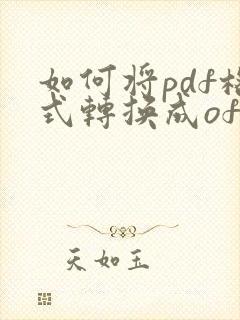 如何将pdf格
式轉換成of
天如玉